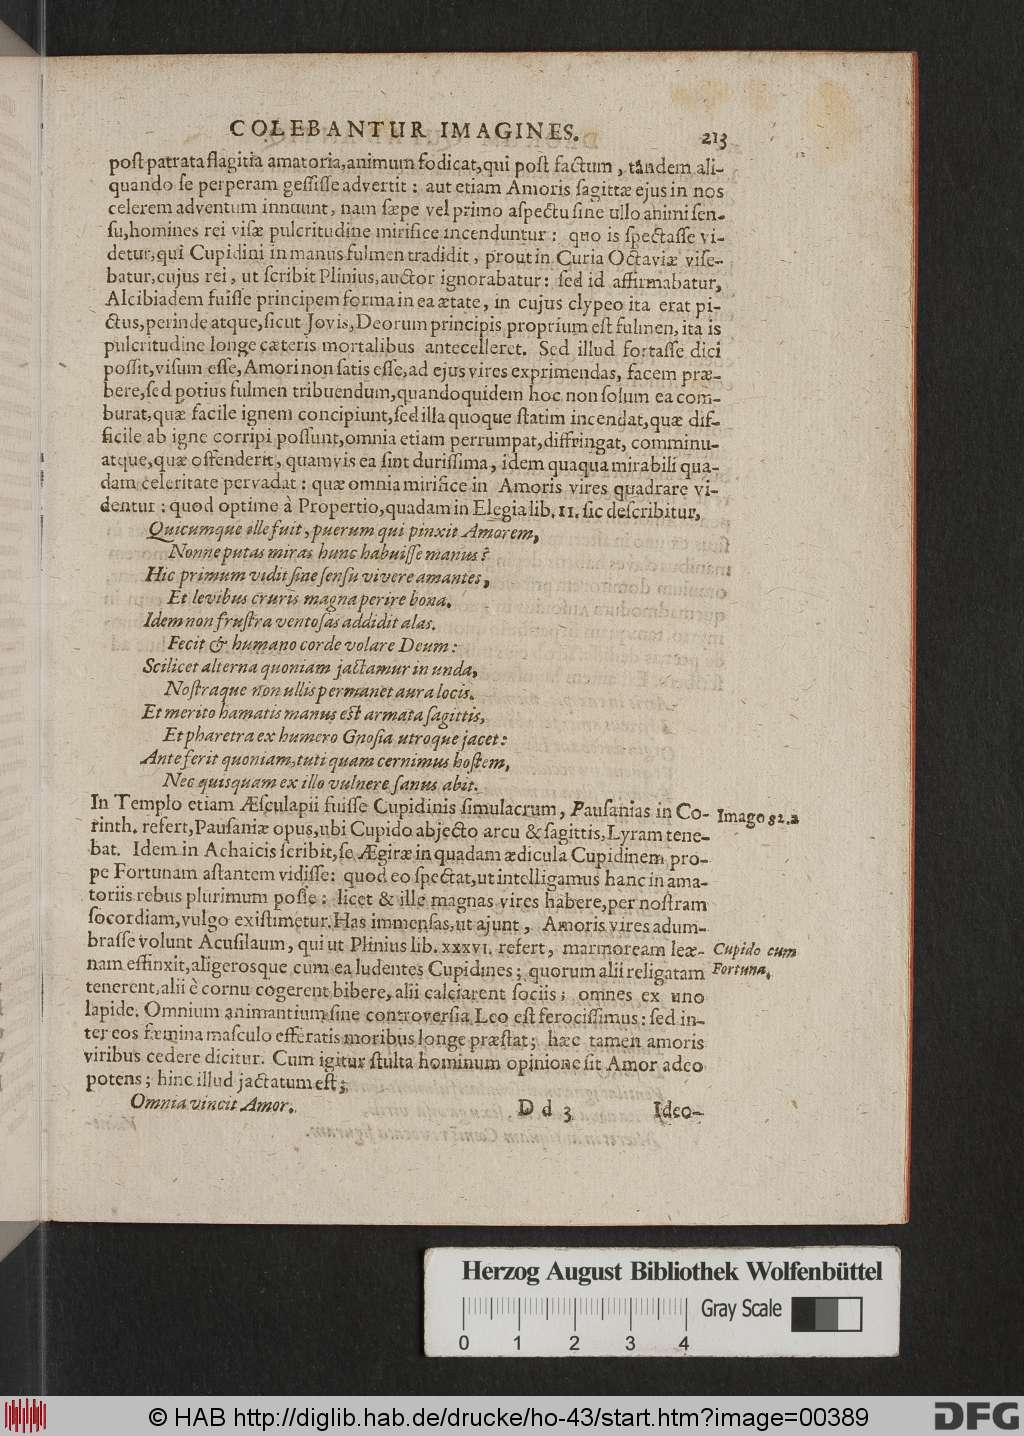 COLEBANTUR IMAGINES. 213
post patrata flagitia amatoria, animum fodicat, qui post factum, tandem ali-
quando se perperam gessisse advertit: aut etiam Amoris sagittæ ejus in nos
celerem adventum innuunt, nam sæpe vel primo aspectu sine ullo animi sen-
su, homines rei visæ pulcritudine mirifice incenduntur: quo is spectasse vi-
detur, qui Cupidini in manus fulmen tradidit, prout in Curia Octaviæ vise-
batur, cujus rei, ut scribit Plinius, auctor ignorabatur: sed id affirmabatur,
Alcibiadem fuisse principem forma in ea ætate, in cujus clypeo ita erat pi-
ctus, perinde atque, sicut Jovis, Deorum principis proprium est fulmen, ita is
pulcritudine longe cæteris mortalibus antecelleret. Sed illud fortasse dici
possit, visum esse, Amori non satis esse, ad ejus vires exprimendas, facem præ-
bere, sed potius fulmen tribuendum, quandoquidem hoc non solum ea com-
burat, quæ facile ignem concipiunt, sed illa quoque statim incendat, quæ dif-
ficile ab igne corripi possunt, omnia etiam perrumpat, diffringat, comminu-
atque, quæ offenderit, quamvis ea sint durissima, idem quaqua mirabili qua-
dam celeritate pervadat: quæ omnia mirifice in Amoris vires quadrare vi-
dentur: quod optime à Propertio, quadam in Elegia lib. II. sic describitur,
Quicumque ille fuit, puerum qui pinxit Amorem,
Nonne putas miras hunc habuisse manus?
Hic primum vidit sine sensu vivere amantes,
Et levibus cruris magna perire bona.
Idem non frustra ventosas addidit alas.
Fecit & humano corde volare Deum:
Scilicet alterna quoniam jactamur in unda,
Nostraque non ullis permanet aura locis.
Et merito hamatis manus est armata sagittis,
Et pharetra ex humero Gnosia utroque jacet:
Ante ferit quoniam, tuti quam cernimus hostem,
Nec quisquam ex illo vulnere sanus abit.
In Templo etiam Æsculapii fuisse Cupidinis simulacrum, Pausanias in Co- Imago 82.2
rinth. refert, Pausaniæ opus, ubi Cupido abjecto arcu & sagittis, Lyram tene-
bat. Idem in Achaicis scribit, se Ægiræ in quadam ædicula Cupidinem pro-
pe Fortunam astantem vidisse: quod eo spectat, ut intelligamus hanc in ama-
toriis rebus plurimum posse: licet & ille magnas vires habere, per nostram
socordiam, vulgo existimetur. Has immensas, ut ajunt, Amoris vires adum-
brasse volunt Acusilaum, qui ut Plinius lib. XXXVI. refert, marmoream leæ- Cupido cum
nam effinxit, aligerosque cum ea ludentes Cupidines; quorum alii religatam Fortuna,
tenerent, alii è cornu cogerent bibere, alii calciarent sociis; omnes ex uno
lapide. Omnium animantium sine controversia Leo est ferocissimus: sed in-
ter eos fæmina masculo efferatis moribus longe præstat; hæc tamen amoris
viribus cedere dicitur. Cum igitur stulta hominum opinione sit Amor adeo
potens; hinc illud jactatum est;
Omnia vincit Amor.
D d 3 Ideo-
Herzog August Bibliothek Wolfenbüttel
Gray Scale
0 1 2 3 4
© HAB http://diglib.hab.de/drucke/ho-43/start.htm?image=00389
DFG